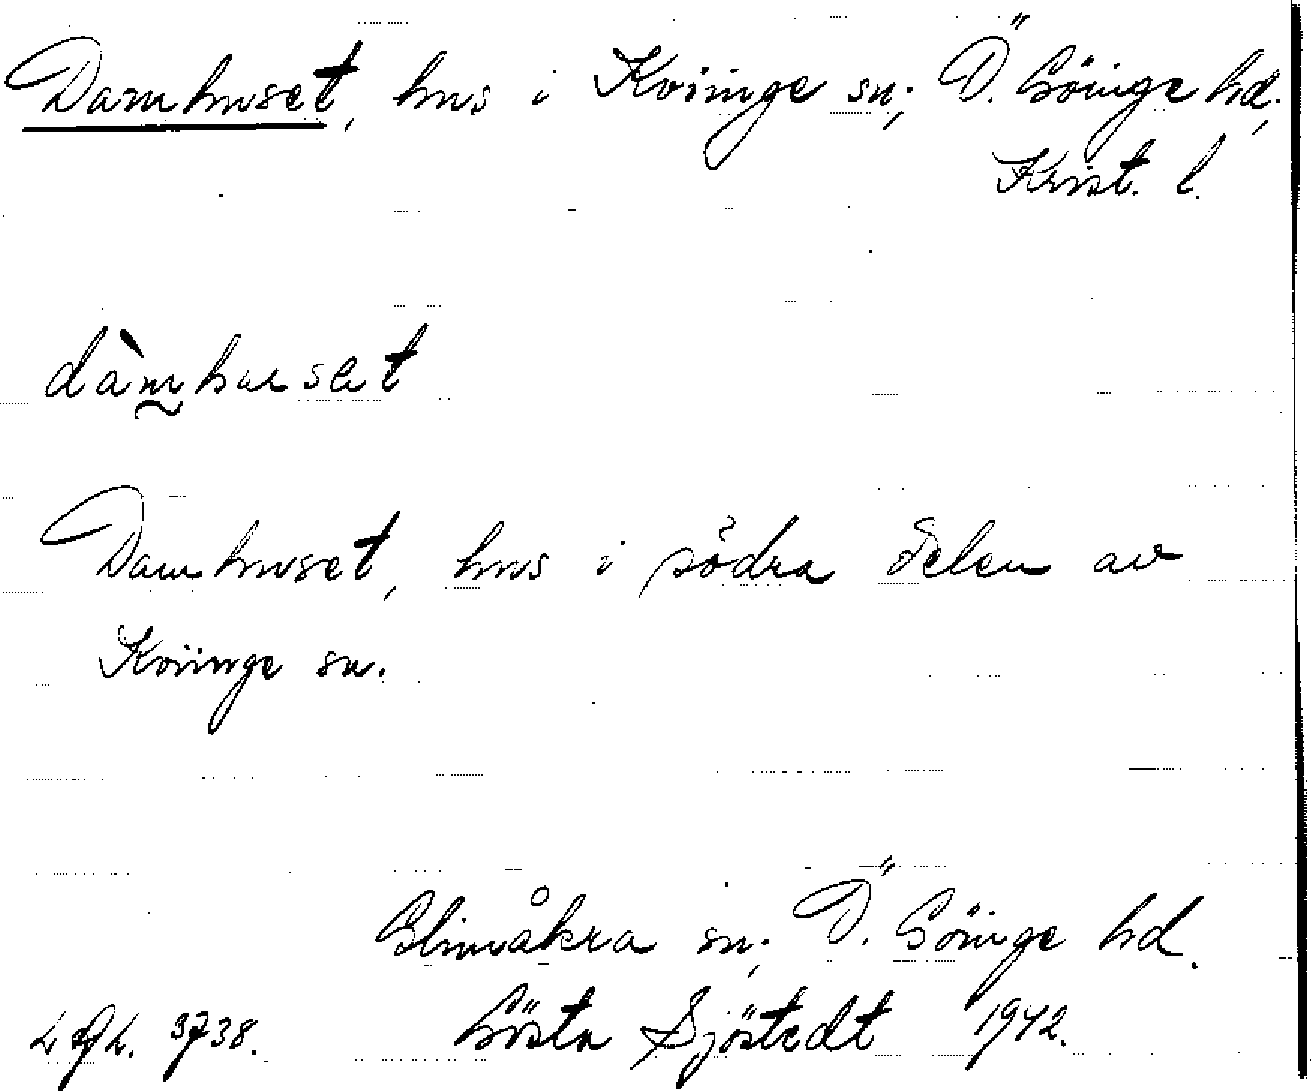 Damhuset, hus i Kviinge sn., Ö. Göinge hd.,
Krist. l.
Damhuset, hus i södra delen av
Kviinge sn.
Glimåkra sn., Ö. Göinge hd.
Gösta Sjöstedt 1942.